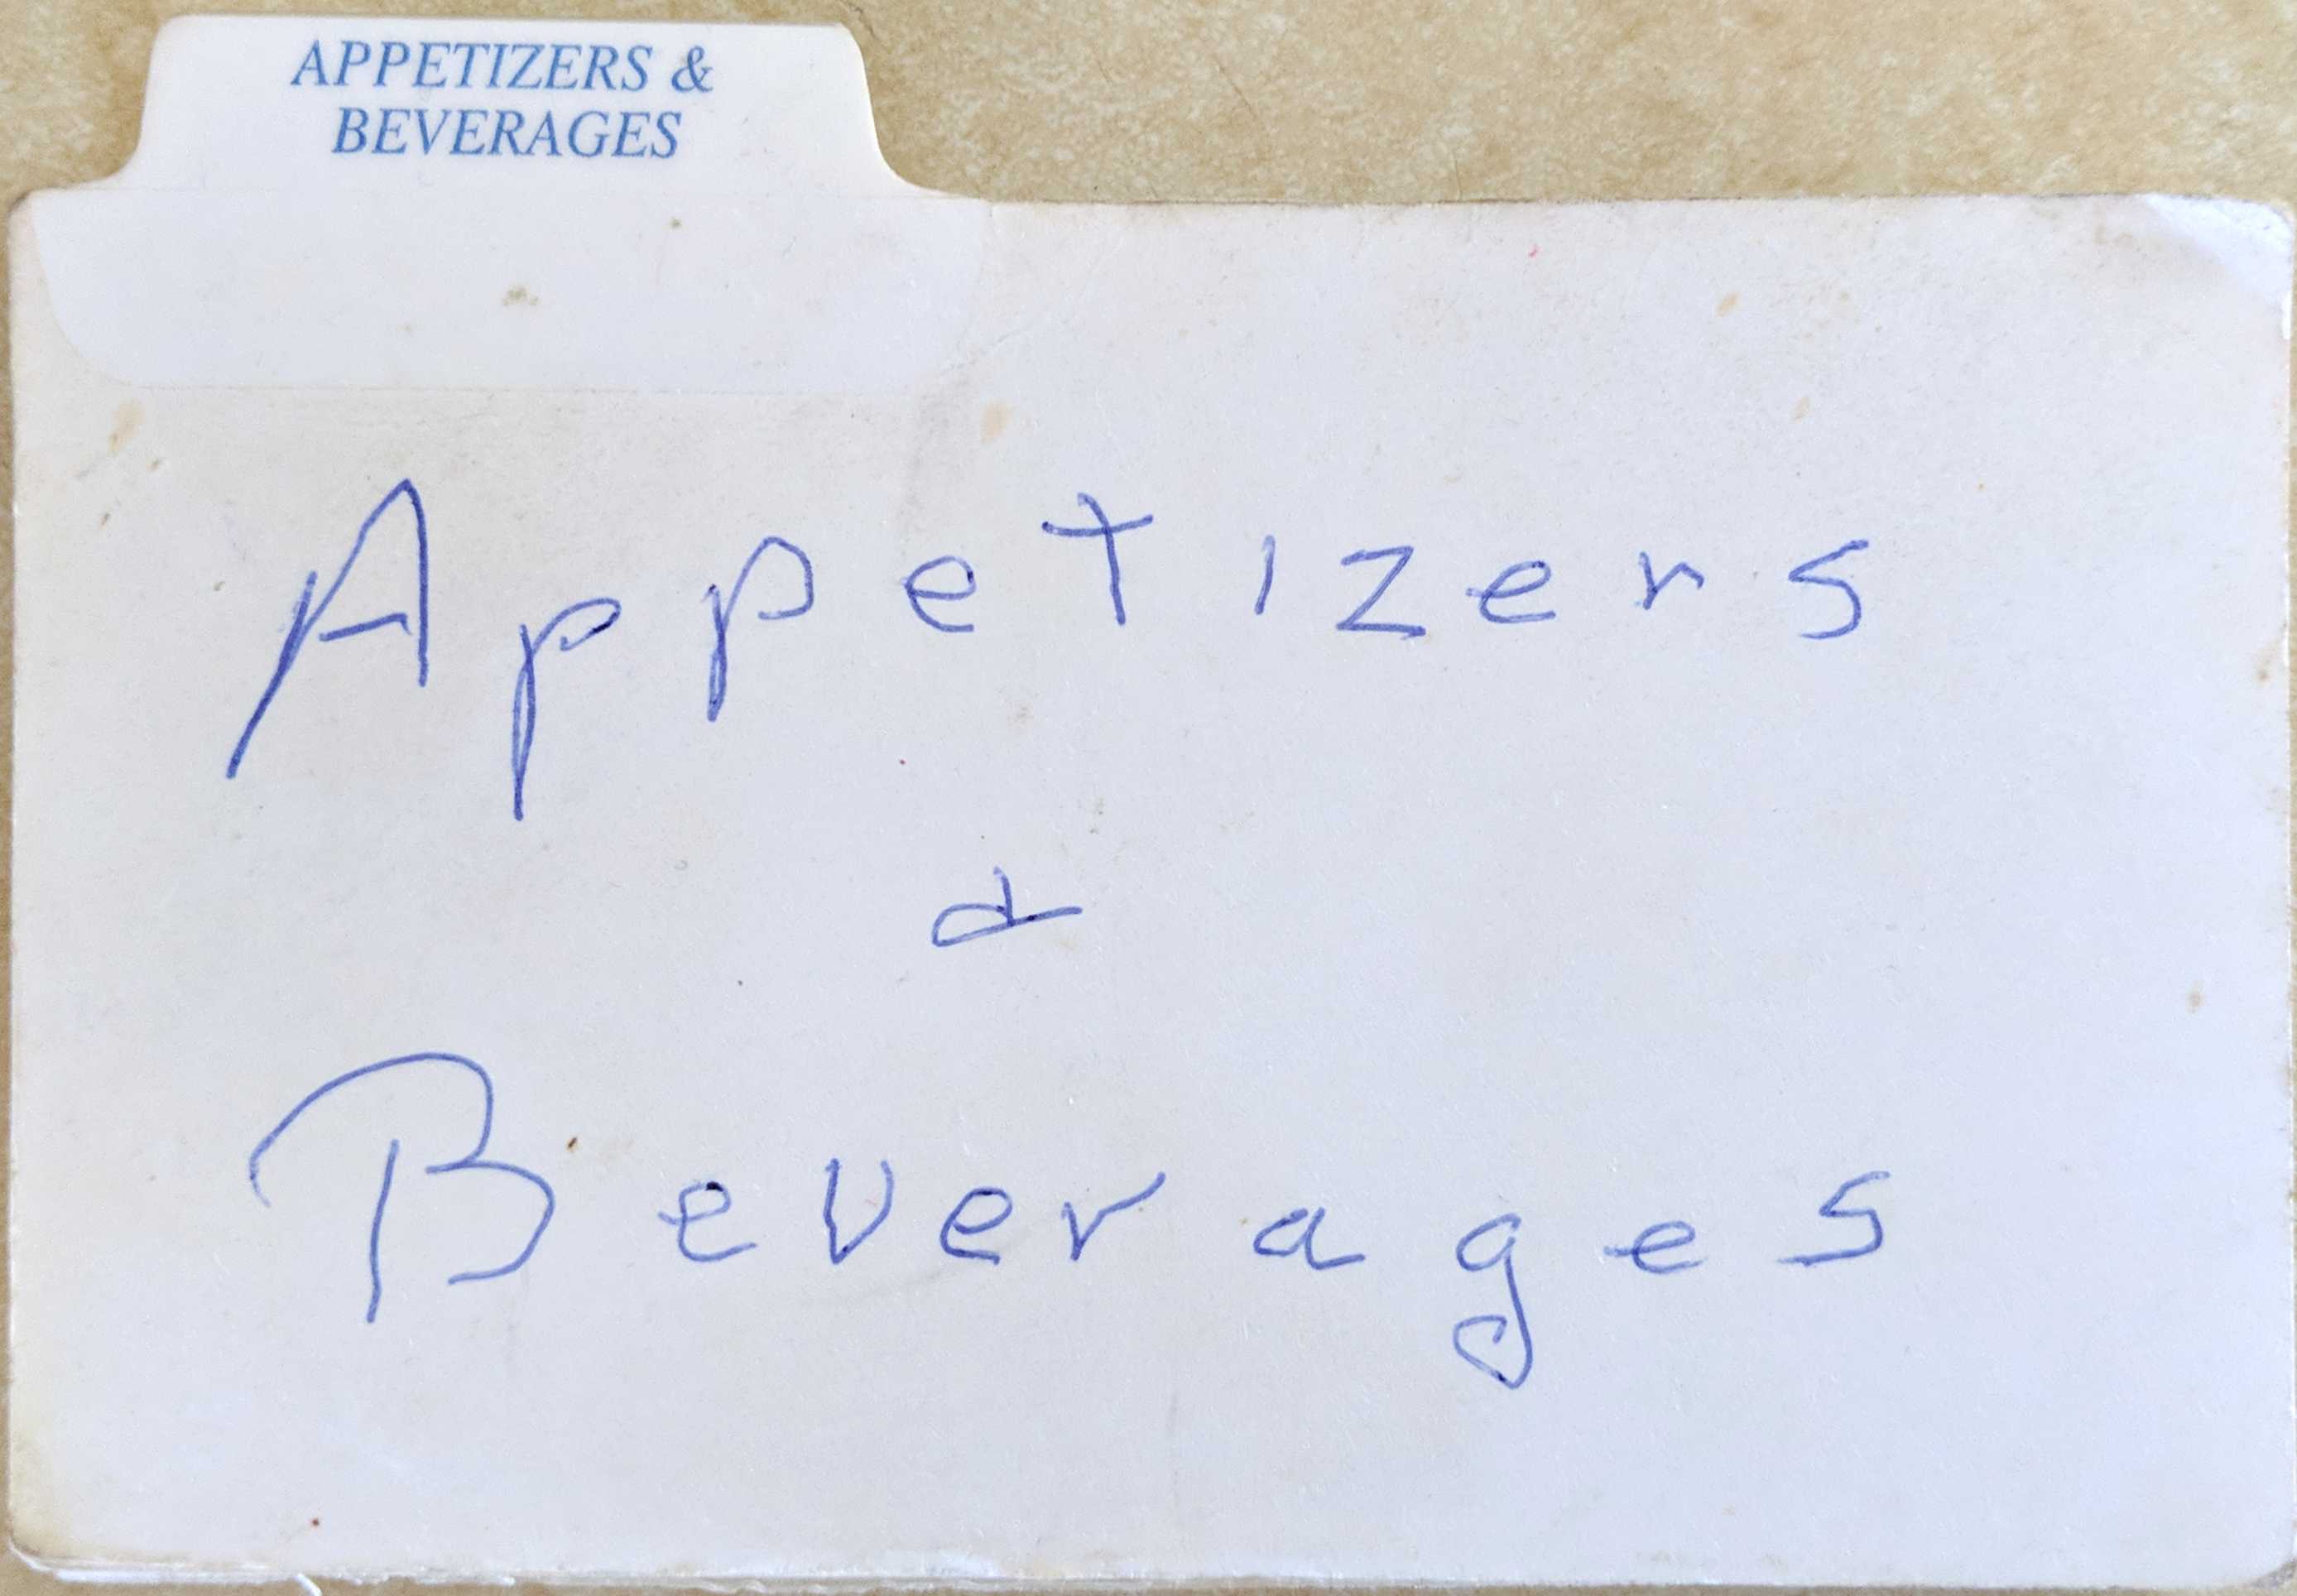 APPETIZERS &
BEVERAGES
Appetizers
&
Beverages